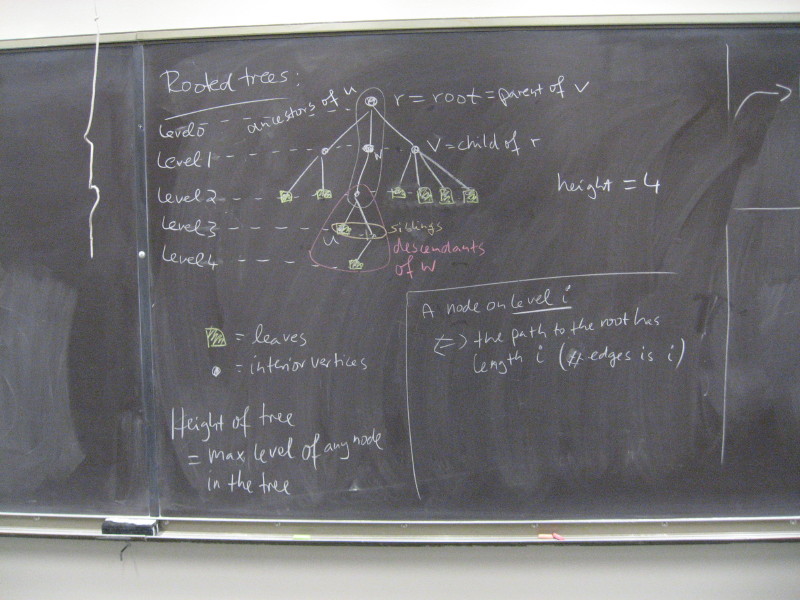 Rooted trees:
ancestors of u
r = root = parent of v
Level 0
Level 1
w
v = child of r
Level 2
height = 4
Level 3
u
siblings
Level 4
descendants
of w
A node on level i
⇔ the path to the root has
length i (# edges is i)
= leaves
= interior vertices
Height of tree
= max level of any node
in the tree